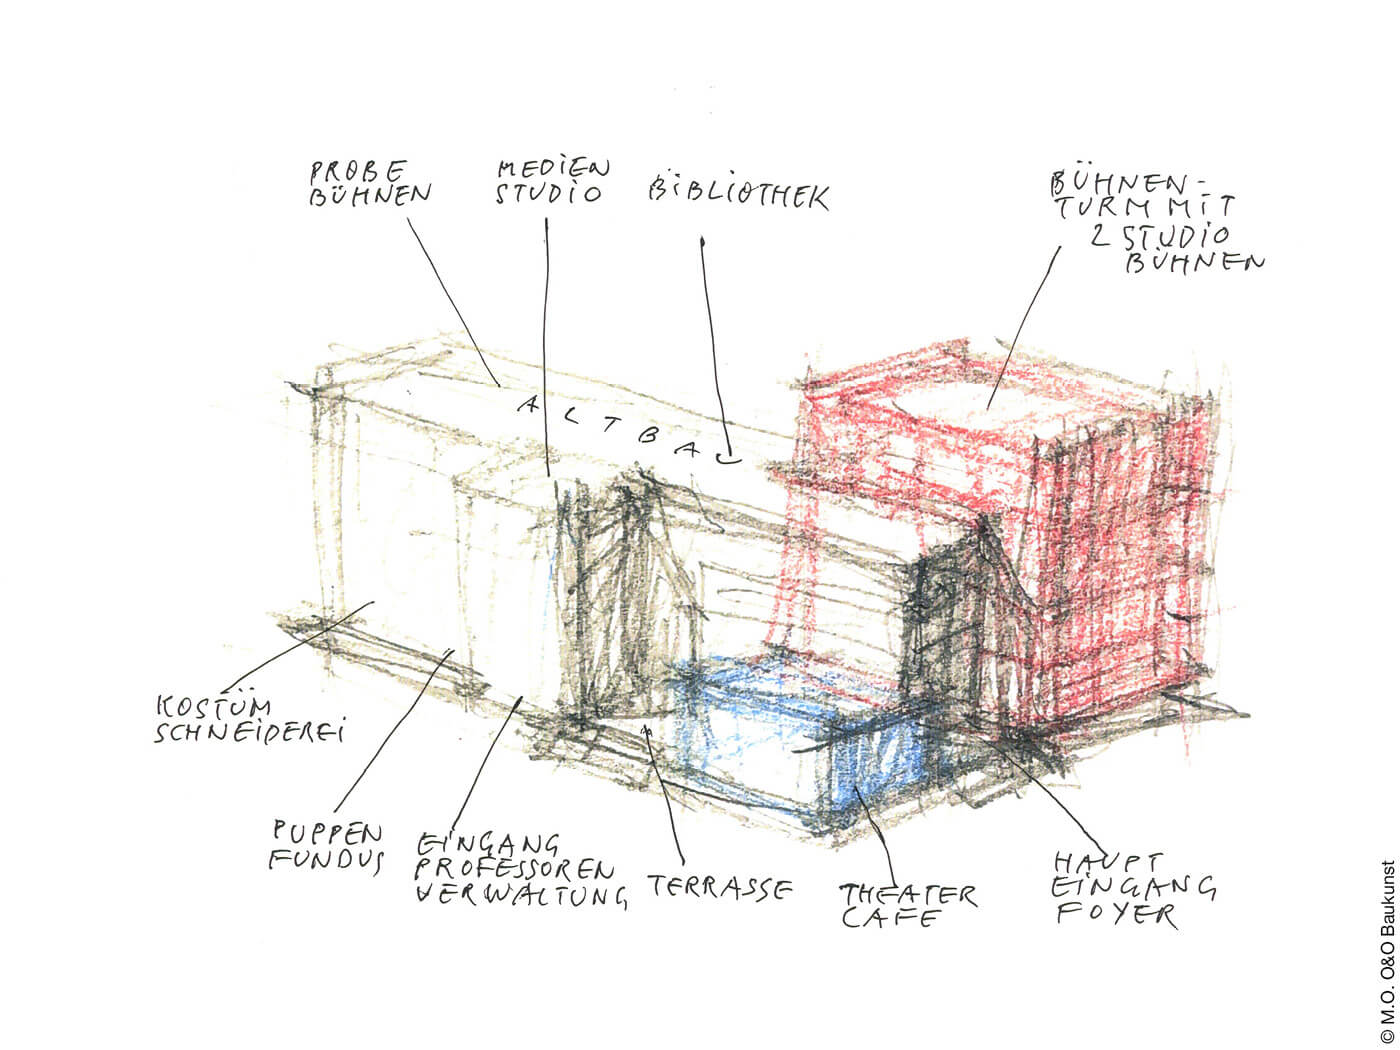 PROBE
BÜHNEN
MEDiEN
STUDiO
BiBLiOTHEK
BÜHNEN-
TURM MiT
2 STUDiO
BÜHNEN
ALTBAU
KOSTÜM
SCHNEiDEREi
PUPPEN
FUNDUS
EiNGANG
PROFESSOREN
VERWALTUNG
TERRASSE
THEATER
CAFE
HAUPT
EiNGANG
FOYER
© M.O. O&O Baukunst